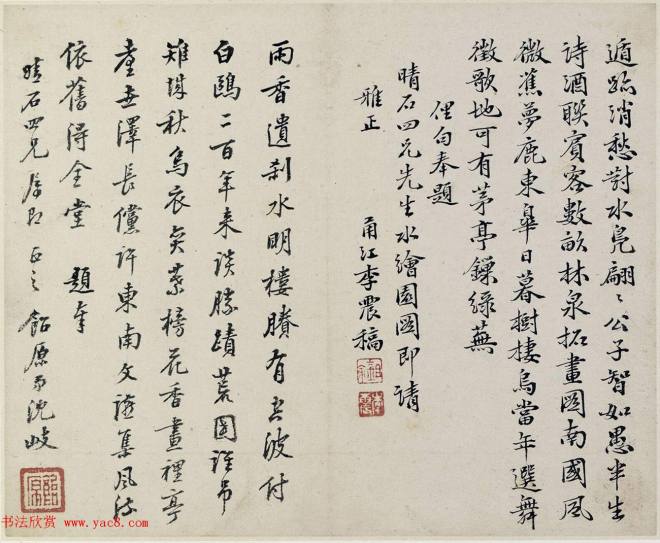 遁跡消愁對水凫翩〻公子智如愚半生
诗酒联賓客數畝林泉拓畫圖南國風
微蕉夢鹿東皋日暮樹棲烏當年選舞
徵歌地可有茅亭鏁緑蕪
俚句奉題
晴石四兄先生水繪園圖即請
雅正
甬江李震稿
雨香遺刹水明樓賸有滄波付
白鷗二百年来谈勝蹟荒園誰吊
雉城秋烏衣矣業榜花香畫裡亭
臺世澤長儻许東南文讌集風流
依舊得金堂 題奉
晴石四兄 正之 飴原弟沈岐
飴原
书法欣赏 www.yac8.com